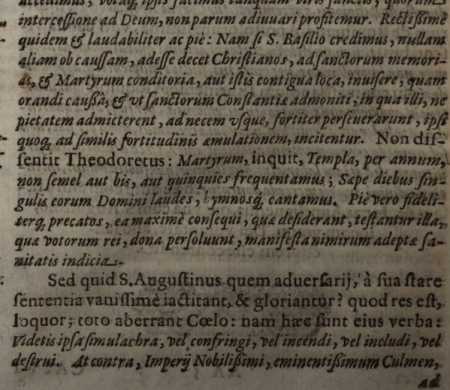 accedimus, votaq́; ipsis facimus tanquam viris sanctis, quorum
intercessione ad Deum, non parum adiuuari profitemur. Rectissimè
quidem & laudabiliter ac piè: Nam si S. Basilio credimus, nullam
aliam ob caussam, adesse decet Christianos, ad sanctorum memori-
as, & Martyrum conditoria, aut istis contigua loca, inuisere, quam
orandi caussâ, & vt sanctorum Constantiæ admoniti, in qua illi, ne
pietatem admitterent, ad necem vsque, fortiter perseuerarunt, ipsi
quoq́, ad similis fortitudinis æmulationem, incitentur. Non dis-
sentit Theodoretus: Martyrum, inquit, Templa, per annum,
non semel aut bis, aut quinquies frequentamus; Sæpe diebus sin-
gulis eorum Domini laudes, hymnosq́, cantamus. Piè vero fideli-
terq́, precatos, ea maximè consequi, quæ desiderant, testantur illa,
quæ votorum rei, dona persoluunt, manifesta nimirum adeptæ sa-
nitatis indicia.
Sed quid S. Augustinus quem aduersarij, à sua stare
sententia vanissimè iactitant, & gloriantur? quod res est,
loquor; toto aberrant Cœlo: nam hæc sunt eius verba:
Videtis ipsa simulachra, vel confringi, vel incendi, vel includi, vel
destrui. At contra, Imperij Nobilissimi, eminentissimum Culmen,
ad